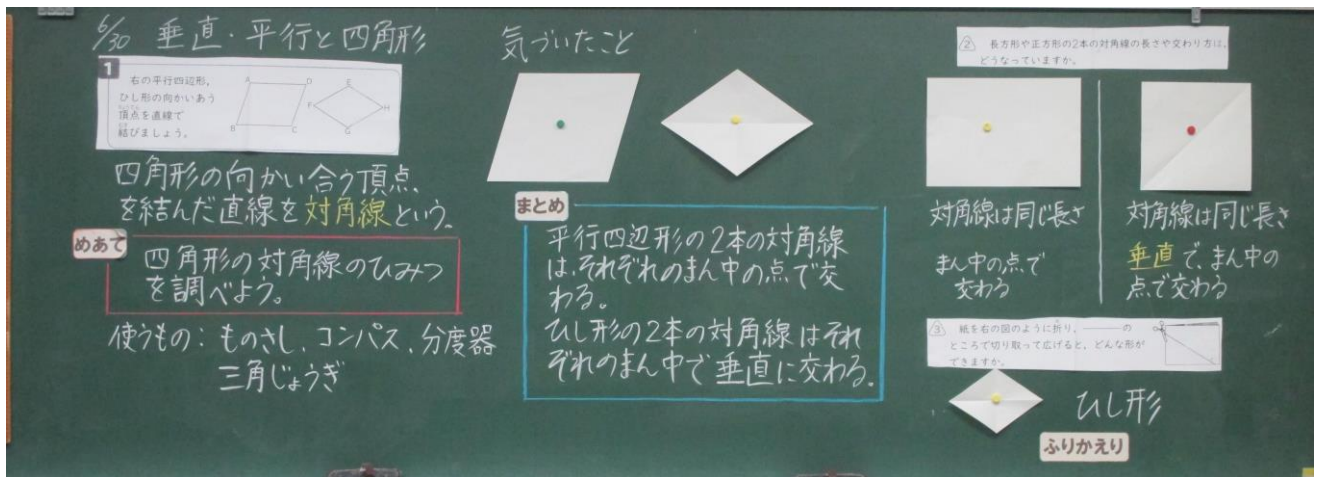 6/30 垂直・平行と四角形
1
右の平行四辺形,
ひし形の向かいあう
頂点を直線で
結びましょう。
A D
B C
E
F H
G
四角形の向かい合う頂点
を結んだ直線を対角線という。
めあて
四角形の対角線のひみつ
を調べよう。
使うもの：ものさし、コンパス、分度器
三角じょうぎ
気づいたこと
まとめ
平行四辺形の2本の対角線
は、それぞれのまん中の点で交
わる。
ひし形の2本の対角線はそれ
ぞれのまん中で垂直に交わる。
2 長方形や正方形の2本の対角線の長さや交わり方は,
どうなっていますか。
対角線は同じ長さ
まん中の点で
交わる
対角線は同じ長さ
垂直で、まん中の
点で交わる
3 紙を右の図のように折り, ――の
ところで切り取って広げると, どんな形が
できますか。
ひし形
ふりかえり